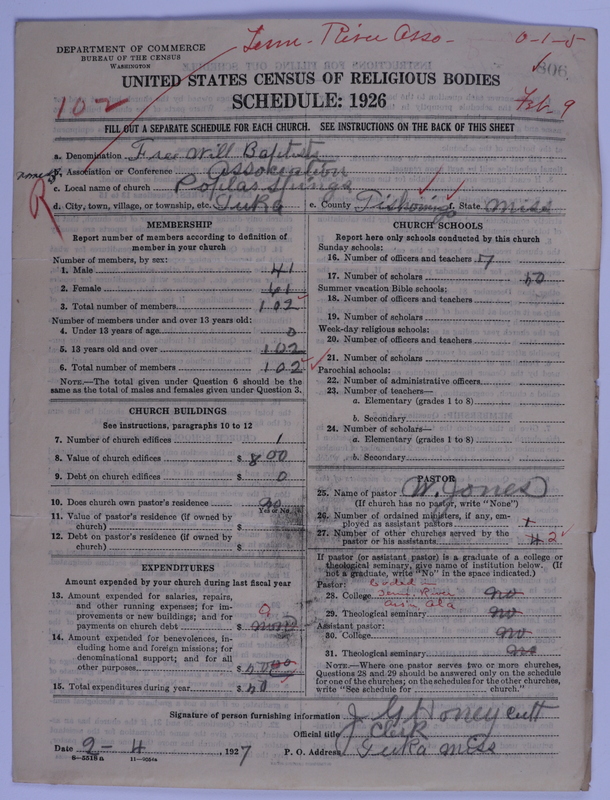 Tenn. River Asso- 0-1-5
DEPARTMENT OF COMMERCE
BUREAU OF THE CENSUS
WASHINGTON
UNITED STATES CENSUS OF RELIGIOUS BODIES
SCHEDULE: 1926
102
Feb. 9
FILL OUT A SEPARATE SCHEDULE FOR EACH CHURCH. SEE INSTRUCTIONS ON THE BACK OF THIS SHEET
a. Denomination Free Will Baptists
b. Association or Conference Association
c. Local name of church Poplar Springs
d. City, town, village, or township, etc. Iuka e. County Tishomingo f. State Miss
R
MEMBERSHIP
Report number of members according to definition of
member in your church
Number of members, by sex:
1. Male 41
2. Female 61
3. Total number of members 102
Number of members under and over 13 years old:
4. Under 13 years of age 0
5. 13 years old and over 102
6. Total number of members 102
NOTE.—The total given under Question 6 should be the
same as the total of males and females given under Question 3.
CHURCH BUILDINGS
See instructions, paragraphs 10 to 12
7. Number of church edifices 1
8. Value of church edifices $ 800
9. Debt on church edifices $ 0
10. Does church own pastor's residence no
Yes or No
11. Value of pastor's residence (if owned by
church) $
12. Debt on pastor's residence (if owned by
church) $
EXPENDITURES
Amount expended by your church during last fiscal year
13. Amount expended for salaries, repairs,
and other running expenses; for im-
provements or new buildings; and for
payments on church debt $ none
14. Amount expended for benevolences, in-
cluding home and foreign missions; for
denominational support; and for all
other purposes $
15. Total expenditures during year $
CHURCH SCHOOLS
Report here only schools conducted by this church
Sunday schools:
16. Number of officers and teachers 7
17. Number of scholars 50
Summer vacation Bible schools:
18. Number of officers and teachers
19. Number of scholars
Week-day religious schools:
20. Number of officers and teachers
21. Number of scholars
Parochial schools:
22. Number of administrative officers
23. Number of teachers—
a. Elementary (grades 1 to 8)
b. Secondary
24. Number of scholars—
a. Elementary (grades 1 to 8)
b. Secondary
PASTOR
25. Name of pastor W. Jones
(If church has no pastor, write "None")
26. Number of ordained ministers, if any, em-
ployed as assistant pastors
27. Number of other churches served by the
pastor or his assistants 2
If pastor (or assistant pastor) is a graduate of a college or
theological seminary, give name of institution below. (If
not a graduate, write "No" in the space indicated.)
Pastor: Coded in
28. College Tenn. River no
Assn Ala
29. Theological seminary no
Assistant pastor:
30. College no
31. Theological seminary no
NOTE.—Where one pastor serves two or more churches,
Questions 28 and 29 should be answered only on the schedule
for one of the churches; on the schedules for the other churches,
write "See schedule for church."
Signature of person furnishing information J G Honeycutt
Official title Clerk
Date 2-4, 1927 P. O. Address Iuka Miss
8-5518a 11-9054a